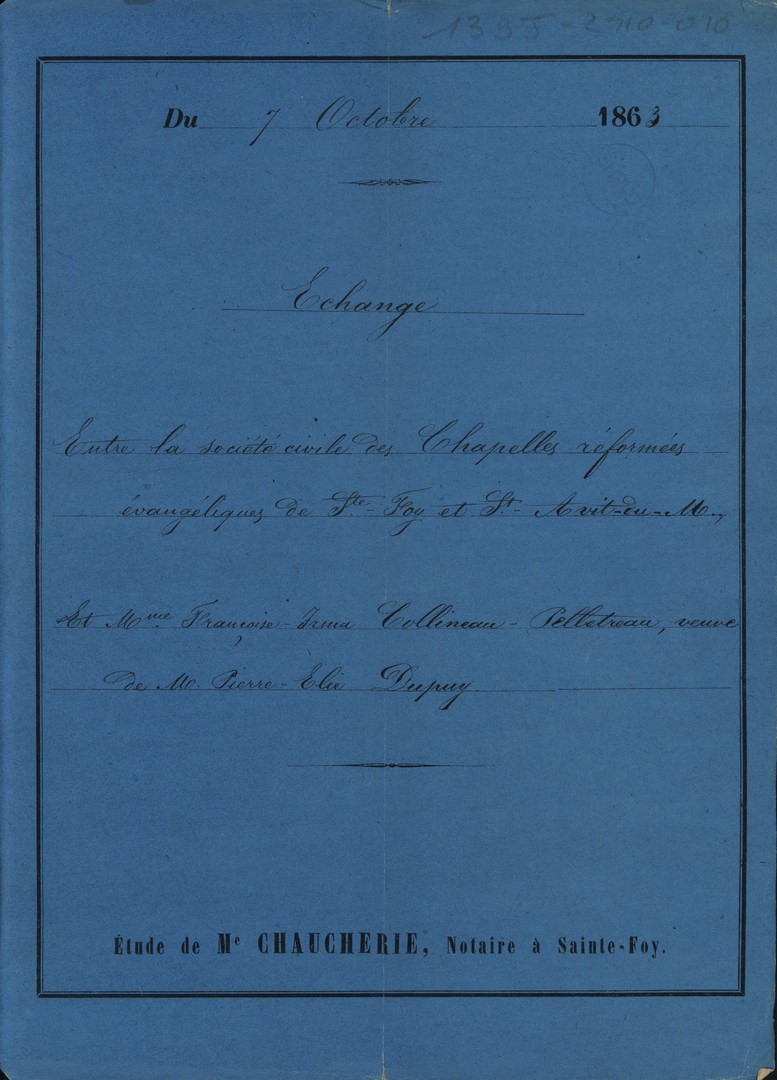 Du 7 Octobre 1863
Echange
Entre la société civile des Chapelles réformées
évangéliques de Ste-Foy et St-Avit-du-M.,
Et Mme Françoise-Irma Collineau-Pelletreau, veuve
de M. Pierre-Elie Dupuy.
Étude de Me CHAUCHERIE, Notaire à Sainte-Foy.